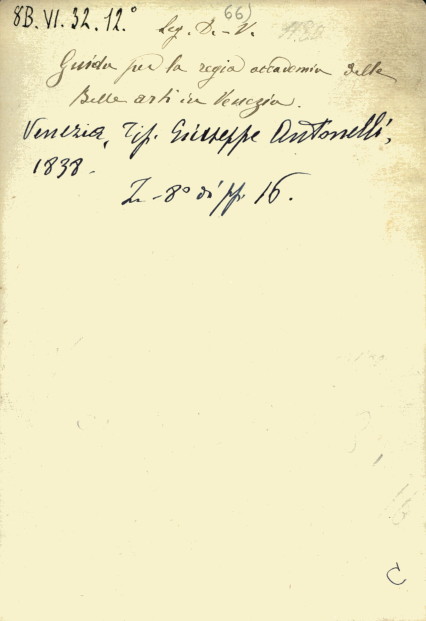 8B.VI.32.12.°
66)
Leg. D.-V.
Guida per la regia accademia delle
Belle arti in Venezia.
Venezia, Tip. Giuseppe Antonelli,
1838.
In-8° di pp. 16.
C